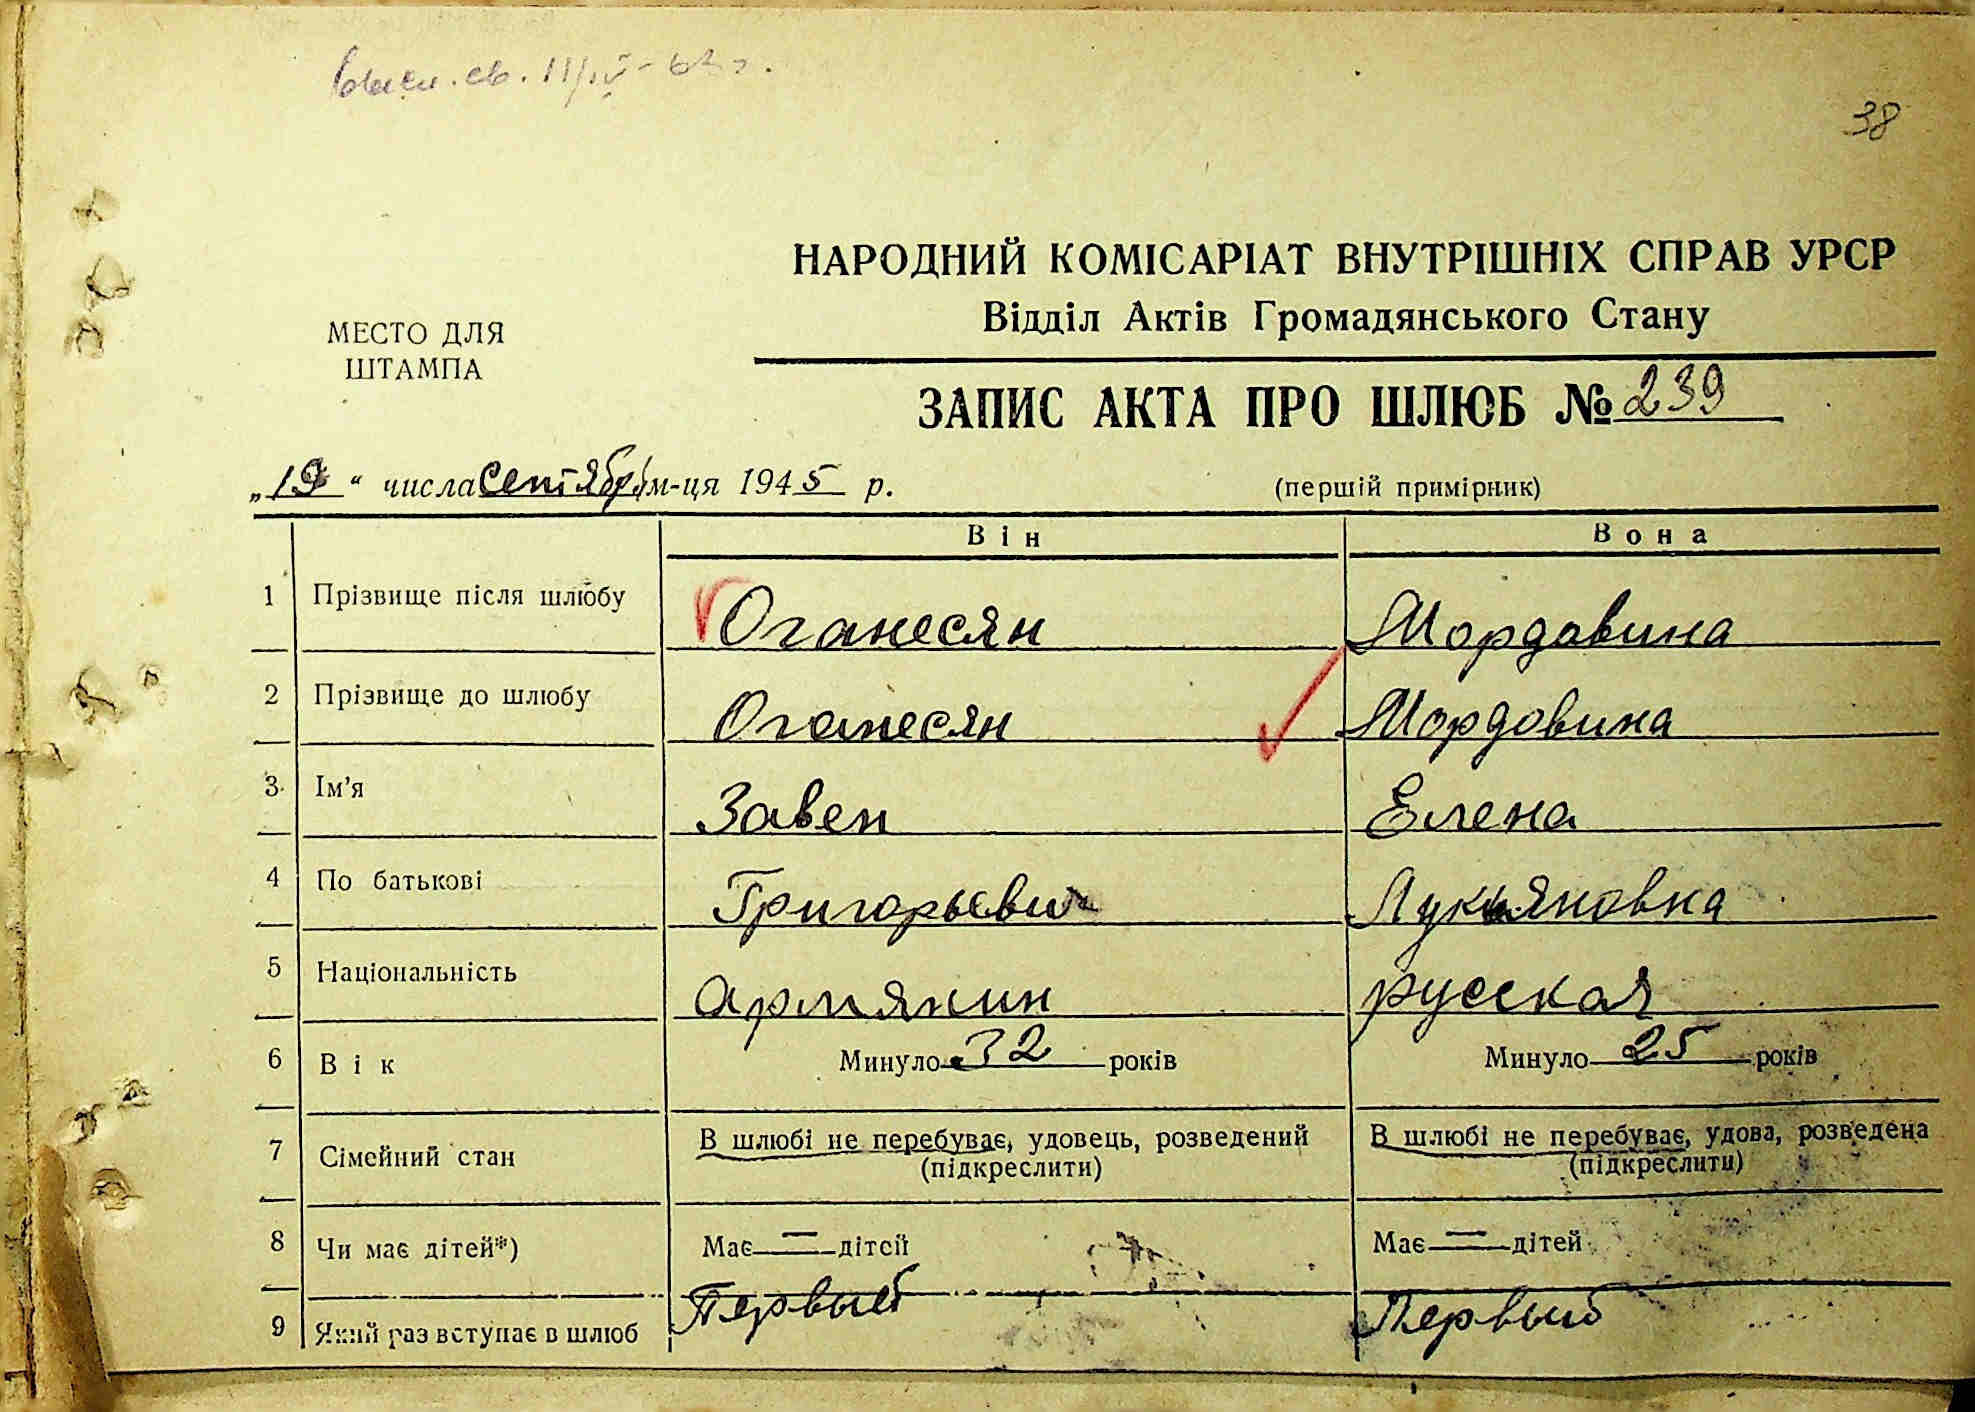 Высл. св. 11/IV-62 г.
38
НАРОДНИЙ КОМІСАРІАТ ВНУТРІШНІХ СПРАВ УРСР
Відділ Актів Громадянського Стану
МЕСТО ДЛЯ
ШТАМПА
ЗАПИС АКТА ПРО ШЛЮБ № 239
„19“ числа сентября м-ця 1945 р. (перший примірник)
Він Вона
1 Прізвище після шлюбу Оганесян Мордавина
2 Прізвище до шлюбу Оганесян Мордовина
3 Ім'я Завен Елена
4 По батькові Григорьевич Лукьяновна
5 Національність армянин русская
6 Вік Минуло 32 років Минуло 25 років
7 Сімейний стан В шлюбі не перебуває, удовець, розведений В шлюбі не перебуває, удова, розведена
(підкреслити) (підкреслити)
8 Чи має дітей*) Має — дітей Має — дітей
9 Який раз вступає в шлюб Первый Первый